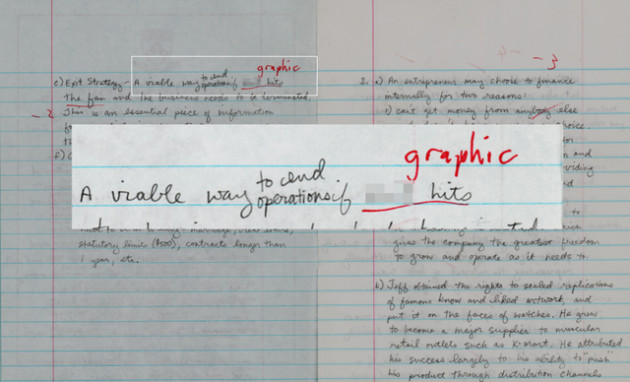 -3
graphic
c) Exit Strategy - A viable way to end operations if hits
The fan and the business needs to be terminated.
-2 This is an essential piece of information
statutory limit ($500), contracts longer than
1 year, etc.
graphic
A viable way to end operations if hits
2. a) An entrepreneur may choose to finance
internally for two reasons:
1) can't get money from anybody else
choice.
for
and
viding
to
which
gives the company the greatest freedom
to grow and operate as it needs to.
b) Jeff obtained the rights to sealed replications
of famous know and liked artwork, and
put it on the faces of watches. He grew
to become a major supplier to muscular
retail outlets such as K-Mart. He attributed
his success largely to his ability to "push"
his product through distribution channels